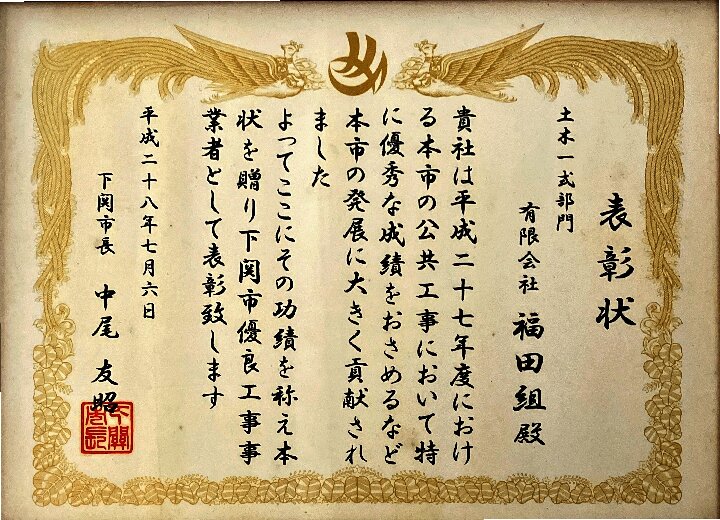 表彰状
土木一式部門
有限会社 福田組殿
貴社は平成二十七年度におけ
る本市の公共工事において特
に優秀な成績をおさめるなど
本市の発展に大きく貢献され
ました
よってここにその功績を称え本
状を贈り下関市優良工事事
業者として表彰致します
平成二十八年七月六日
下関市長 中尾友昭
下關市長